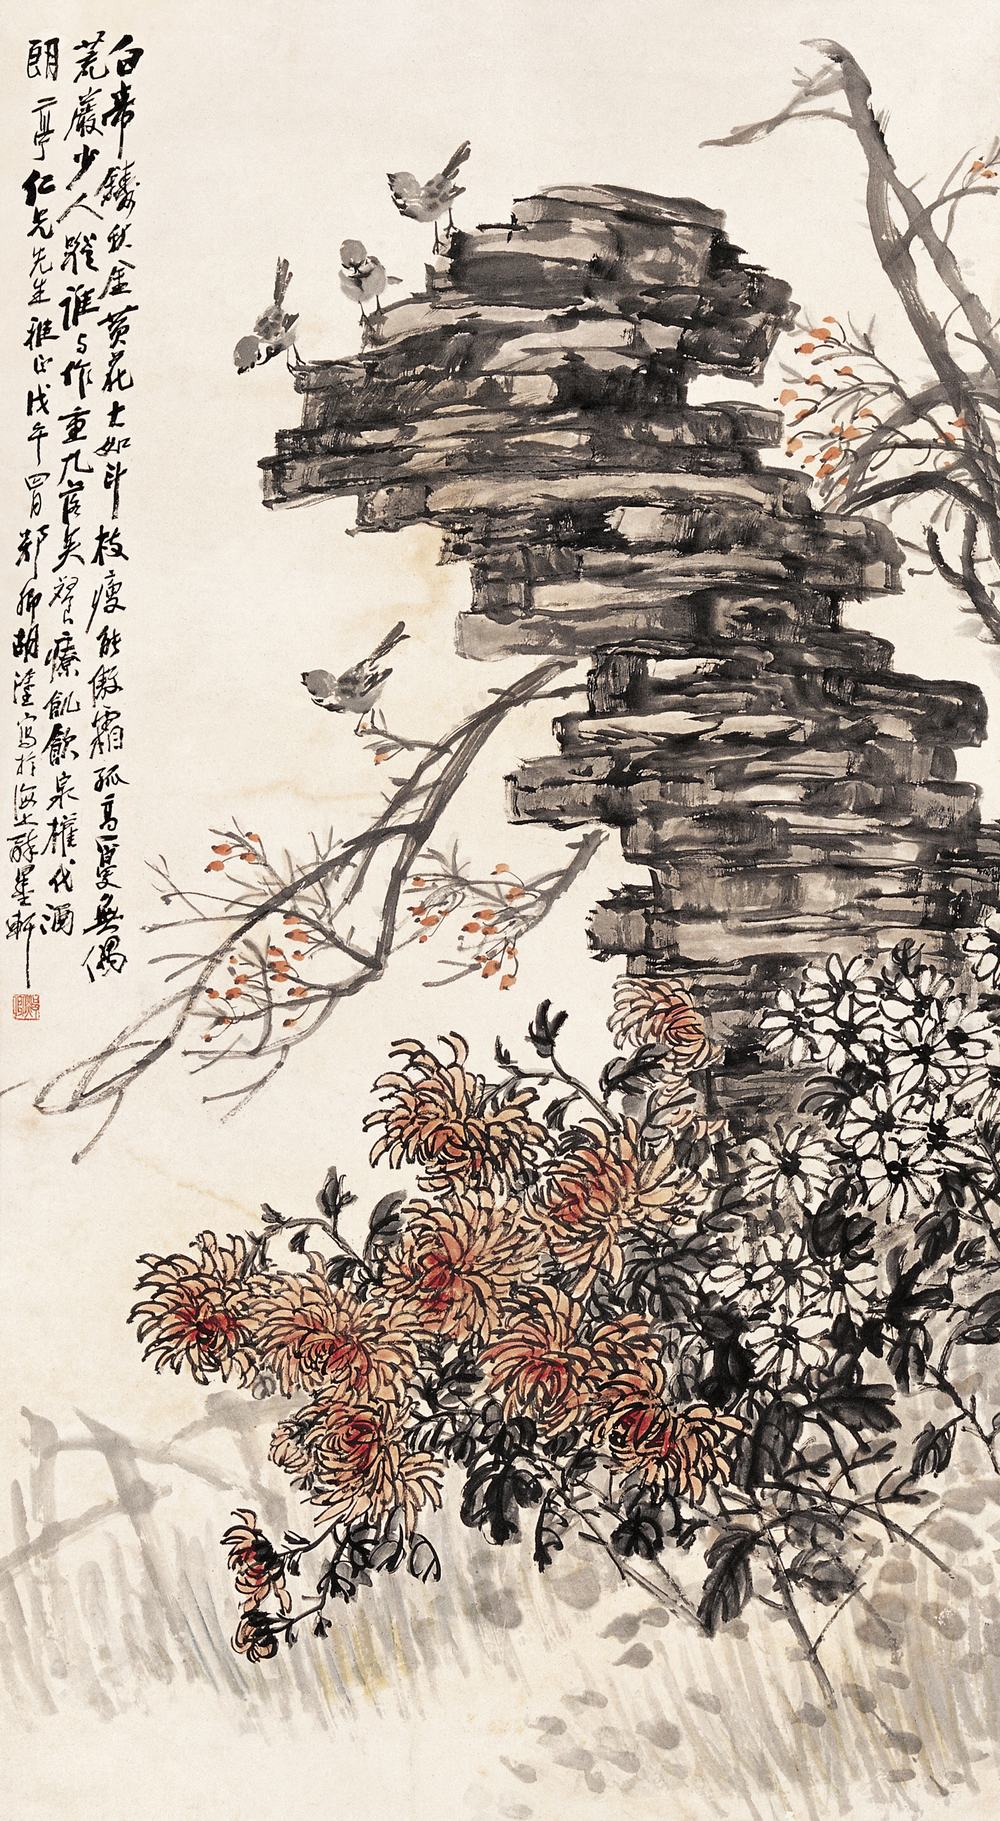 白帝鑄秋金黃花大如斗枝瘦能傲霜孤高一夐無偶
荒巖少人蹤誰與作重九落英餐療飢飲泉權代酒
朗亭仁兄先生雅正戊午四月鄭卿胡 寫於海上醉墨軒